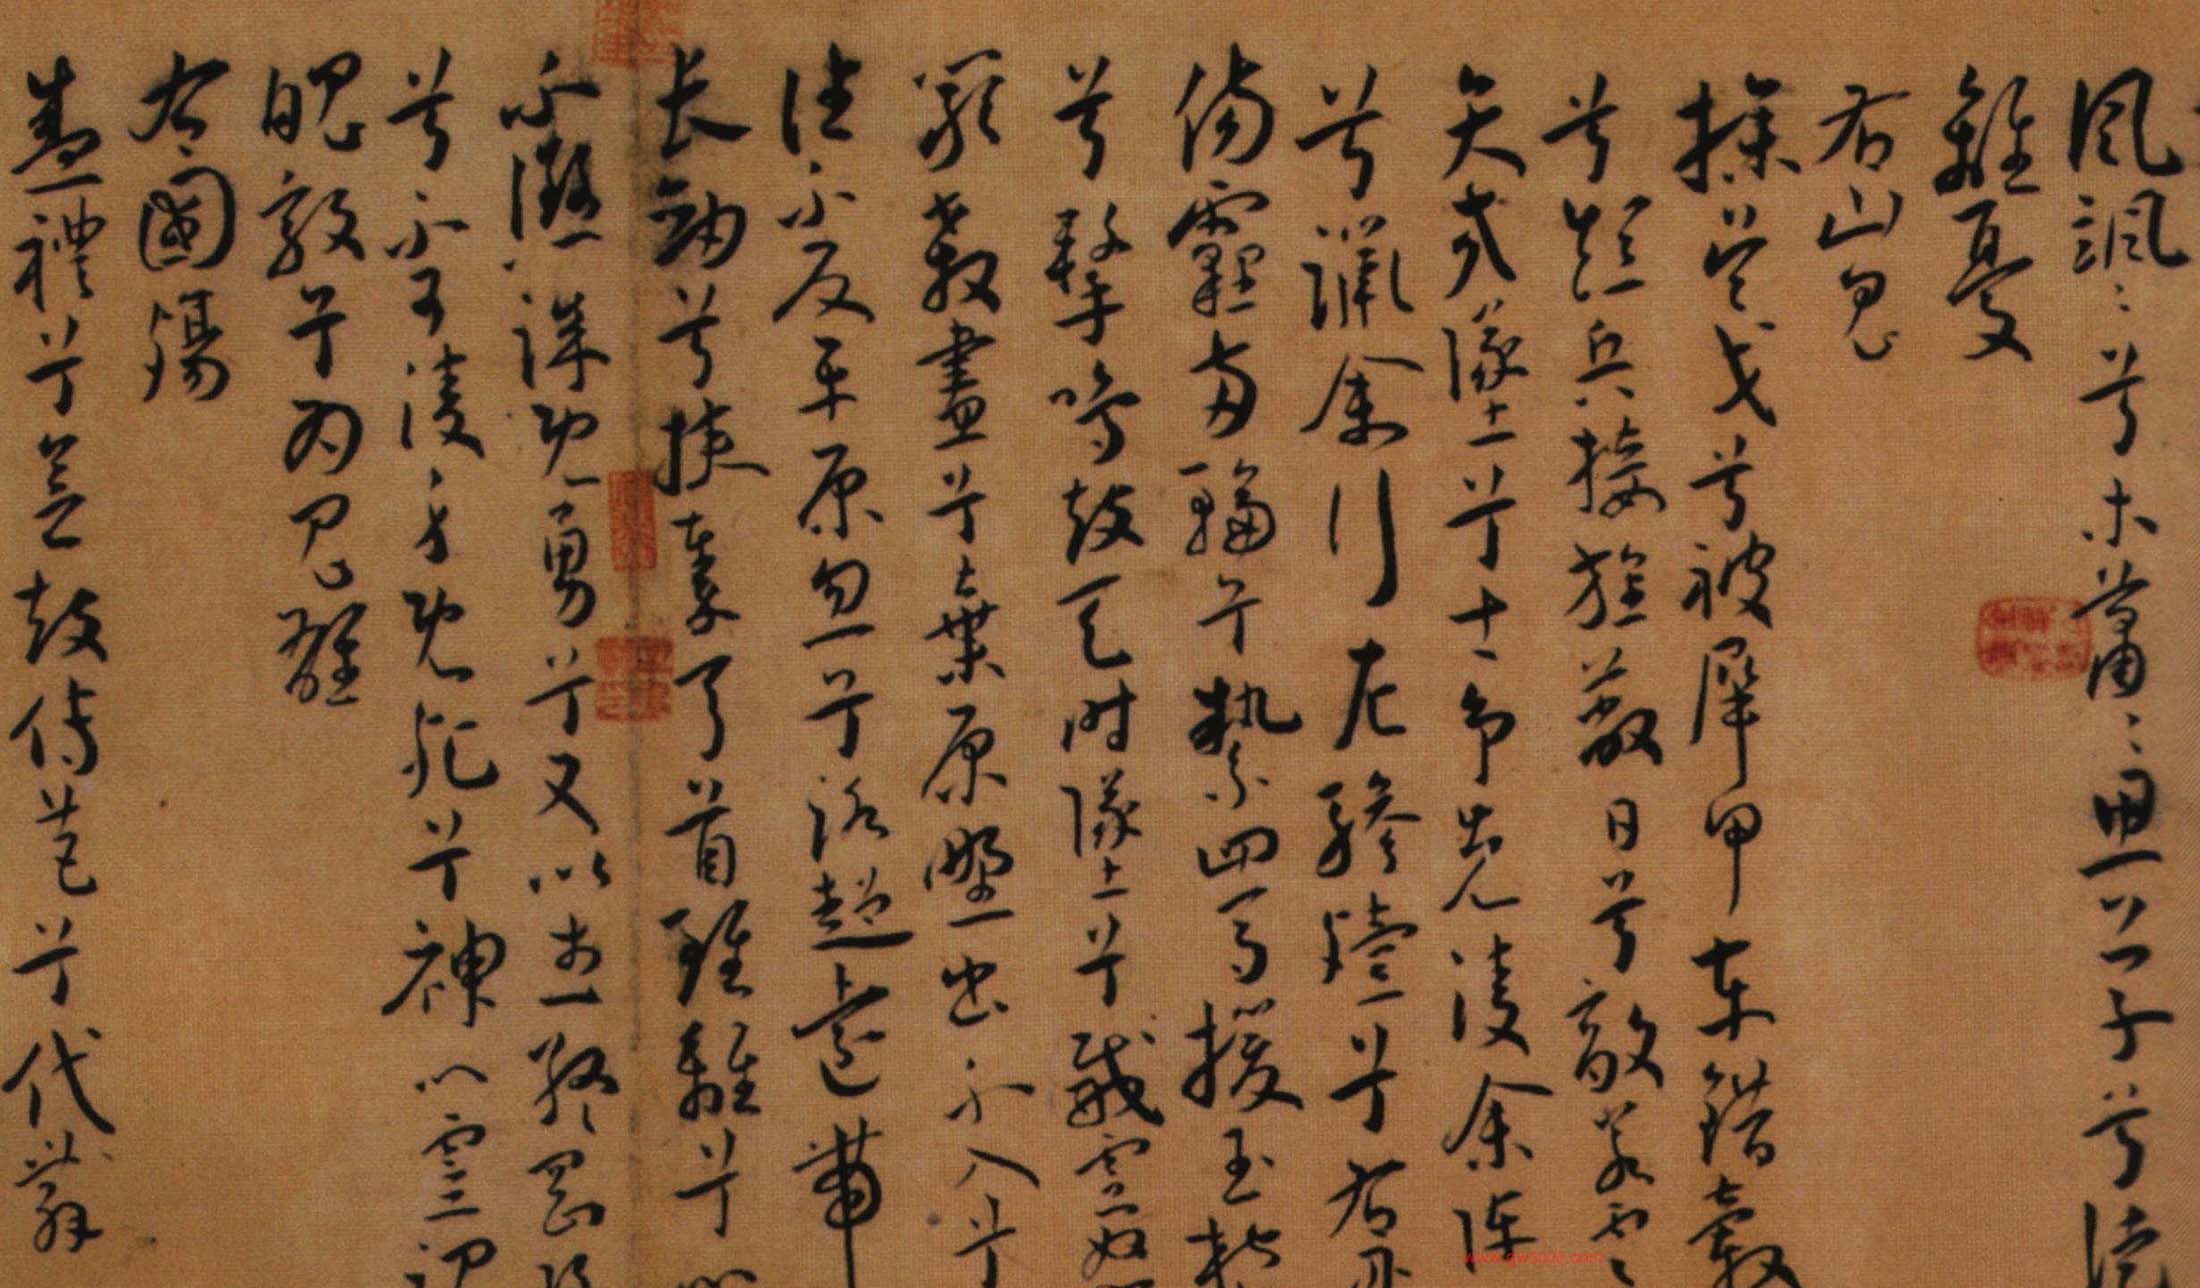 風颯〻兮木蕭〻思公子兮徒
離憂
右山鬼
操吴戈兮被犀甲車錯轂
兮短兵接旌蔽日兮敵若雲
矢交墜兮士争先凌余陣
兮躐余行左驂殪兮右刃
傷霾兩輪兮縶四馬援玉枹
兮擊鳴鼓天時墜兮威靈怒
嚴殺盡兮棄原壄出不入兮
往不反平原忽兮路超遠帶
長劍兮挾秦弓首雖離兮心
不懲誠既勇兮又以武終剛強
兮不可凌身既死兮神以靈魂
魄毅兮為鬼雄
右國殤
盛禮兮會鼓傳芭兮代舞